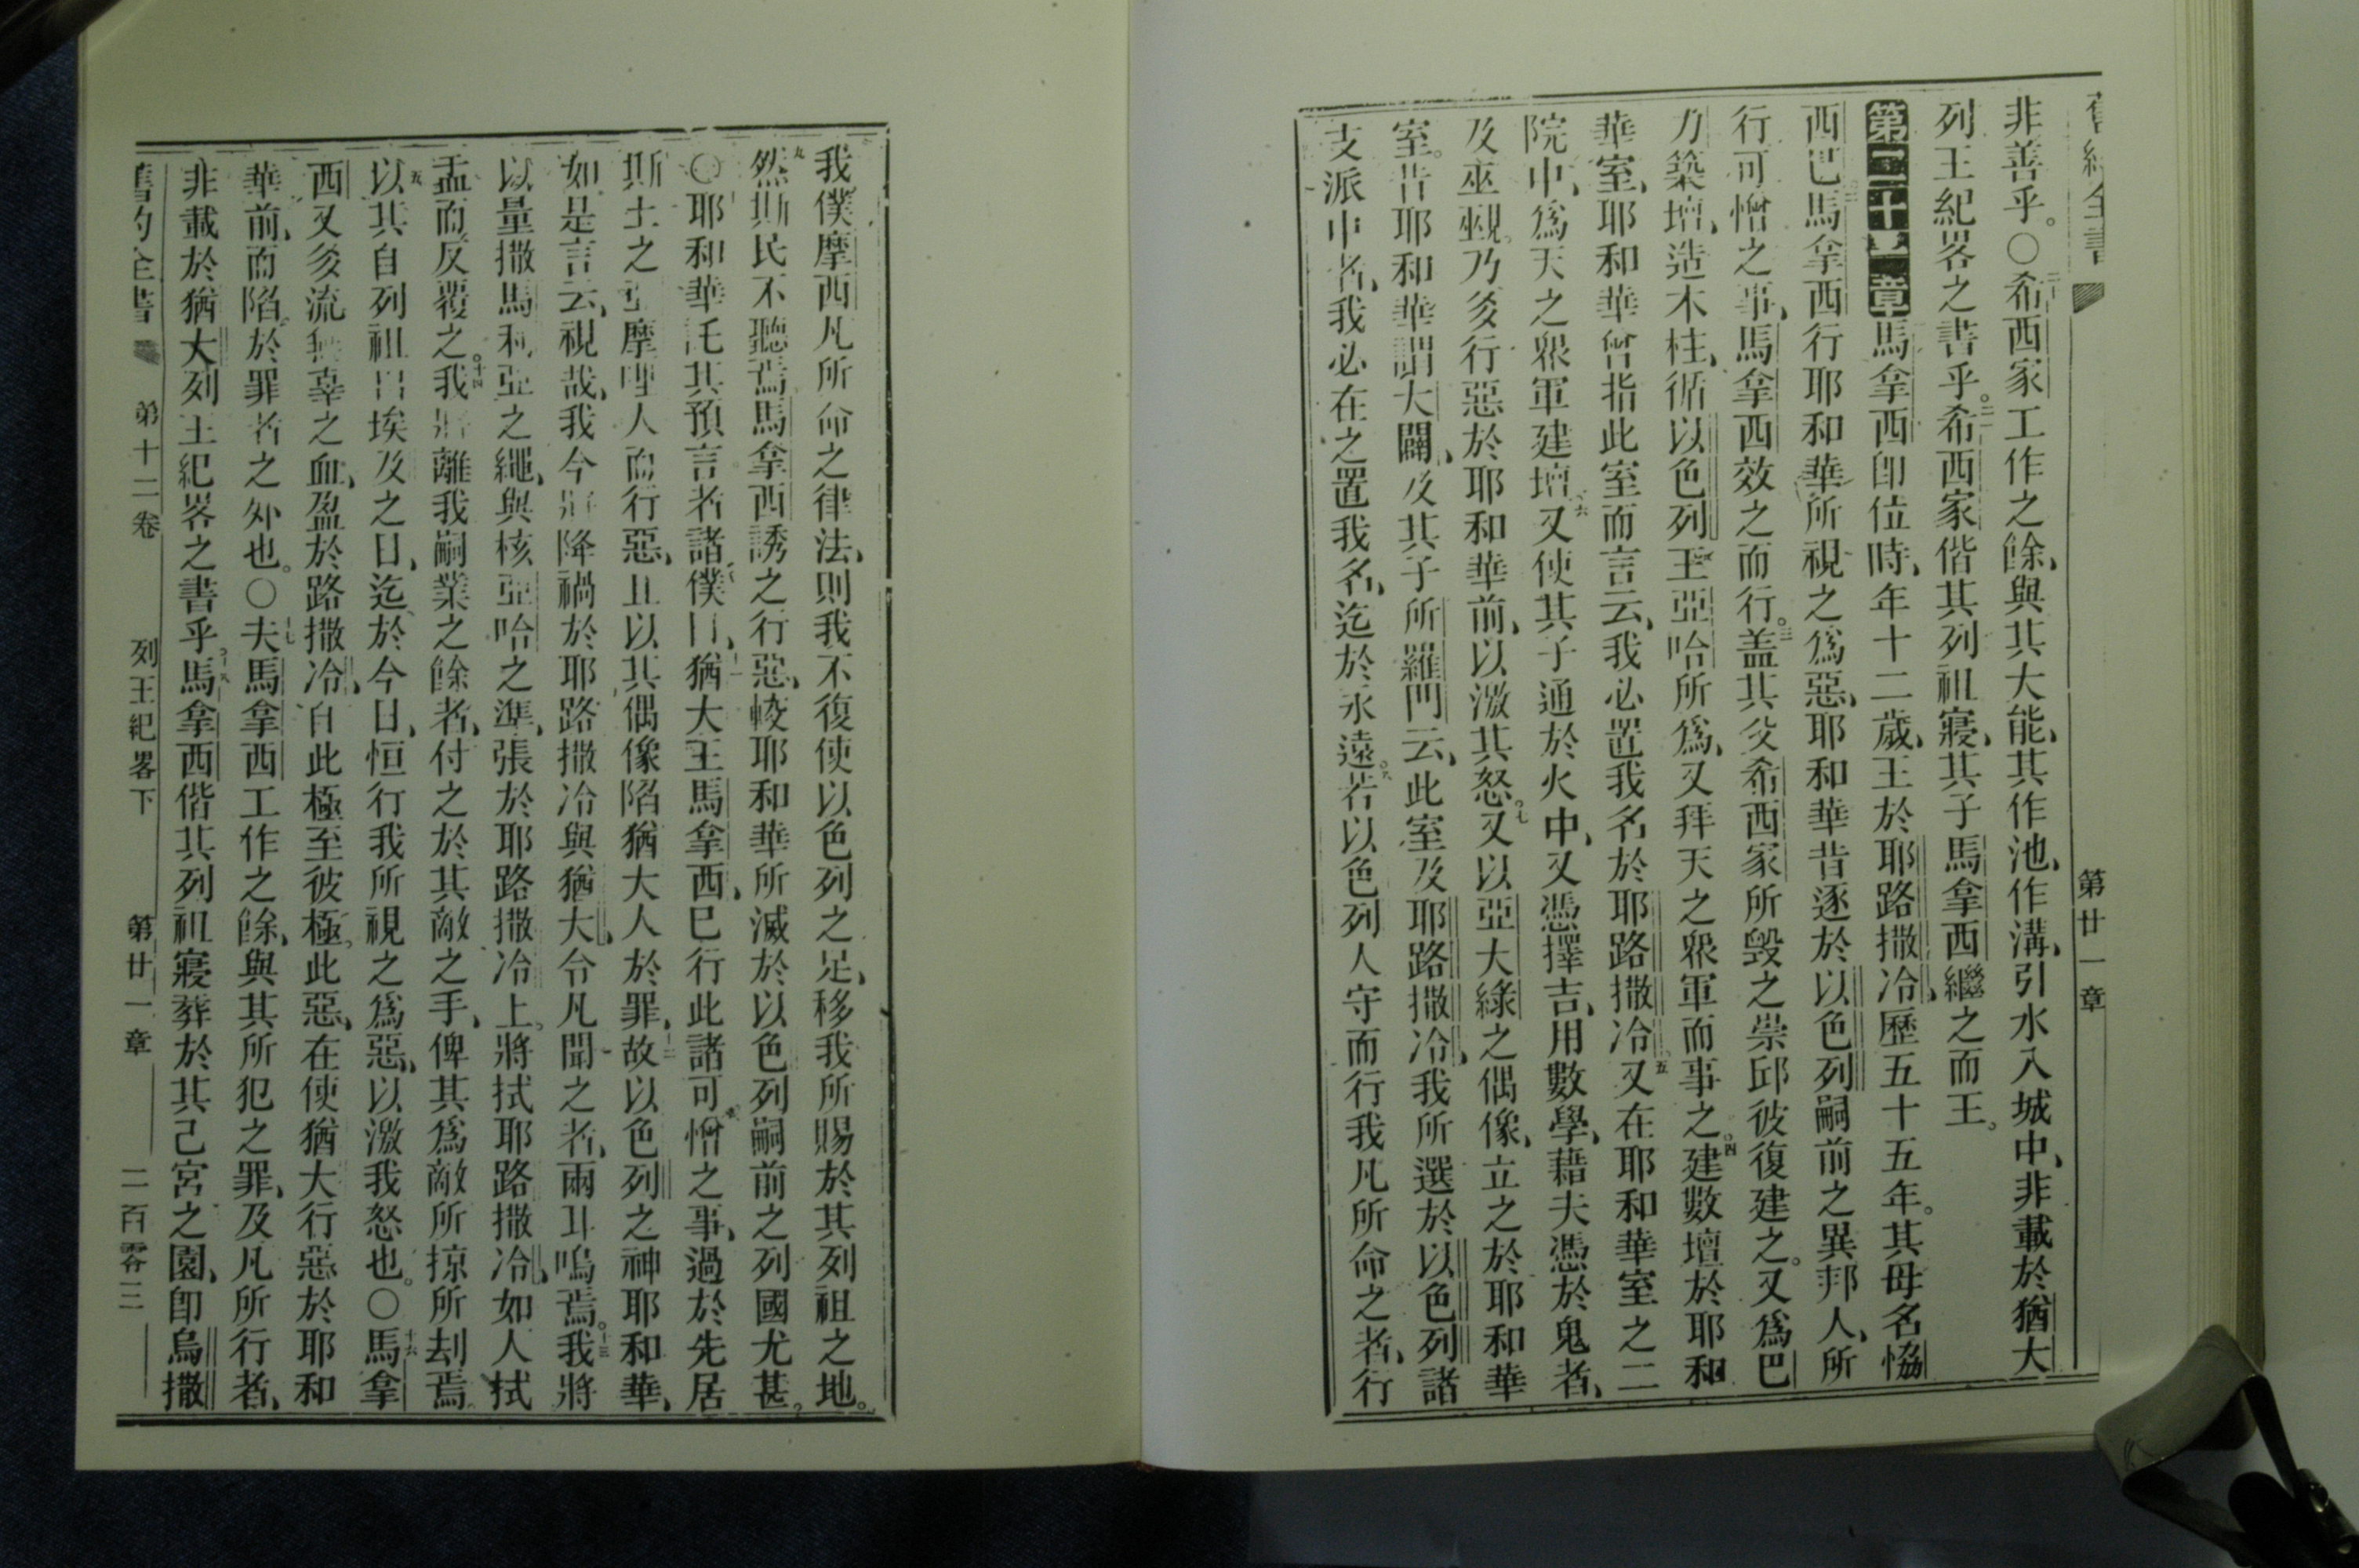 舊約全書 第廿一章
非善乎。○希西家工作之餘、與其大能、其作池、作溝、引水入城中、非載於猶大
列王紀畧之書乎。希西家偕其列祖寢、其子馬拿西繼之而王。
第二十一章馬拿西卽位時、年十二歲、王於耶路撒冷、歷五十五年。其母名恊
西巴馬拿西行耶和華所視之爲惡、耶和華昔逐於以色列嗣前之異邦人、所
行可憎之事、馬拿西效之而行。盖其父希西家所毀之崇邱彼復建之。又爲巴
力築壇、造木柱、循以色列王亞哈所爲、又拜天之衆軍而事之。建數壇於耶和
華室、耶和華曾指此室而言云、我必置我名於耶路撒冷、又在耶和華室之二
院中、爲天之衆軍建壇、又使其子通於火中、又憑擇吉、用數學、藉夫憑於鬼者、
及巫覡。乃多行惡於耶和華前、以激其怒。又以亞大綠之偶像、立之於耶和華
室。昔耶和華謂大闢、及其子所羅門云、此室及耶路撒冷、我所選於以色列諸
支派中者、我必在之置我名、迄於永遠。若以色列人守而行我凡所命之者、行
我僕摩西凡所命之律法、則我不復使以色列之足、移我所賜於其列祖之地。
然斯民不聽焉、馬拿西誘之行惡、較耶和華所滅於以色列嗣前之列國尤甚。
○耶和華託其預言者諸僕曰、猶大王馬拿西、已行此諸可憎之事、過於先居
斯土之亞摩哩人而行惡、且以其偶像陷猶大人於罪、故以色列之神耶和華、
如是言云、視哉、我今將降禍於耶路撒冷與猶大、令凡聞之者、兩耳鳴焉。我將
以量撒馬利亞之繩、與核亞哈之準、張於耶路撒冷上。將拭耶路撒冷、如人拭
盂而反覆之。我將離我嗣業之餘者、付之於其敵之手、俾其爲敵所掠所刦焉。
以其自列祖出埃及之日、迄於今日、恒行我所視之爲惡、以激我怒也。○馬拿
西又多流無辜之血、盈於路撒冷、自此極至彼極。此惡、在使猶大行惡於耶和
華前、而陷於罪者之外也。○夫馬拿西工作之餘、與其所犯之罪、及凡所行者、
非載於猶大列王紀畧之書乎。馬拿西偕其列祖寢葬於其己宮之園、卽烏撒
舊約全書 第十二卷 列王紀畧下 第廿一章 二百零三